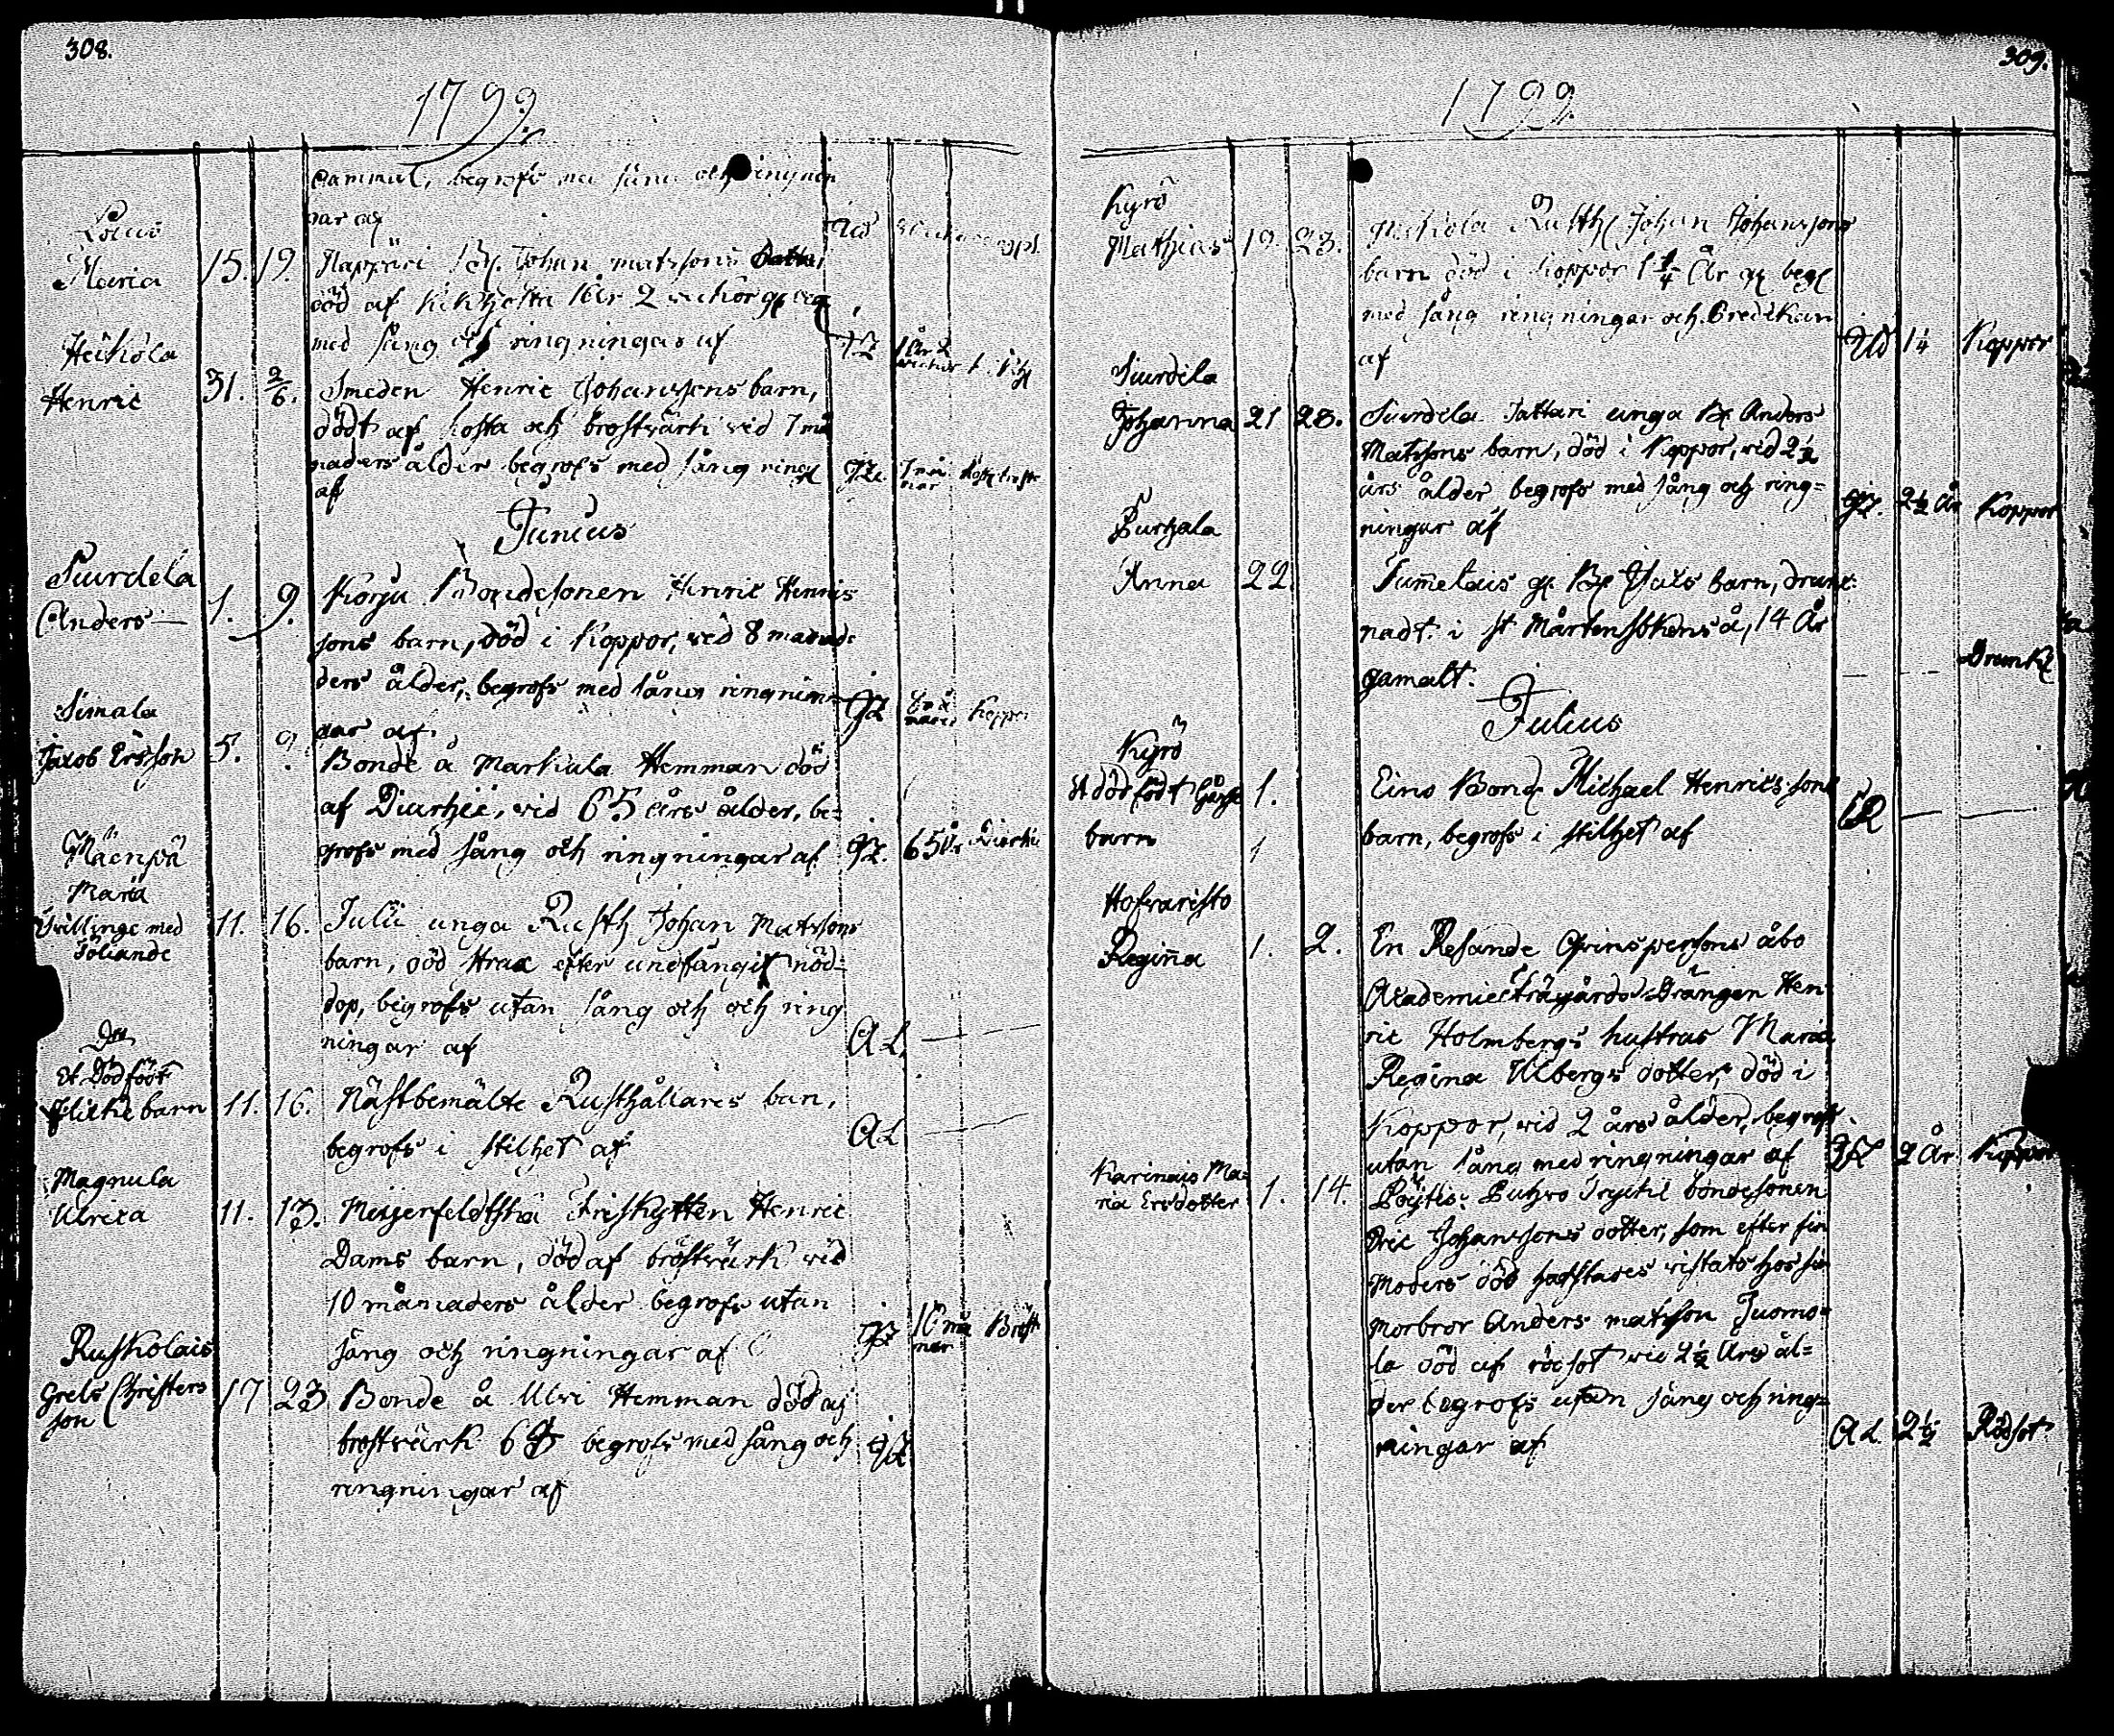 308.
1799.
gammal, begrofs med sång och ringnin
gar af
Maria 15. 19. Nappäri Johan Matssons
död af Kikhosta 1 år 2 veckor
med sång och ringningar af
Heikola
Henric 31. 2/6. Smeden Henric Johanssons barn,
dödt af hosta och bröstvärk vid 7 må
naders ålder begrofs med sång ring
af
Junius
Suurdela
Anders 1. 9. Korju Bondesonen Henric Henrics
sons barn, död i Koppor, vid 8 måna
ders ålder, begrofs med sång ringnin
gar af Koppor
Simala
Jacob Ersson 5. 9. Bonde å Markula Hemman död
af Diarhée, vid 65 års ålder, be-
grofs med sång och ringningar af 65 år Diarhé
Mäenpä
Maria
Tvillinge med
följande 11. 16. Juli unga Rusth Johan Matssons
barn, död strax efter undfångit nöd-
dop, begrofs utan sång och och ring
ningar af AL.
Et Dödfödt
flicke barn 11. 16. Nästbemälte Rusthållares barn,
begrofs i stilhet af AL
Magnula
Ulrica 11. 13. Meijerfeldtska Friskytten Henric
Dams barn, död af bröstvärk vid
10 månaders ålder begrofs utan
sång och ringningar af 10 må
nar Bröst
Ruskolais
Grels Christers
son 17 23 Bonde å Ulvi Hemman död af
bröstvärk begrofs med sång och
ringningar af
309.
1799.
Kyrö
Mathias 19. 23. Mickola Rusth Johan Johanssons
barn död i koppor 1 1/4 År begr
med sång ringningar och Predikan
af 1 1/4 Koppor
Suurdela
Johanna 21 28. Suurdela Tattari unga Anders
Matssons barn, död i Koppor, vid 2 1/2
års ålder begrofs med sång och ring-
ningar af 2 1/2 År Koppor
Purhala
Anna 22. barn, drunk-
nadt i St Mårtens Sokens å, 14 År
gamalt. Drunk
Julius
Kyrö
Et dödfödt Gåsse
barn 1. Eino Bond Michael Henricssons
1 barn, begrofs i stilhet af
Hofvaristo
Regina 1. 2. En Resande Qvinspersons åbo
Academie trägårds Drängen Hen-
ric Holmbergs hustrus Maria
Regina Ulbergs dotter, död i
Koppor, vid 2 års ålder, begrofs
utan sång med ringningar af 2 År Koppor
Karinais Ma-
ria Ersdotter 1. 14. Pöytis bondesonen
Eric Johanssons dotter, som efter sin
Moders död vistats hos sin
Morbror Anders Matsson Juomo-
la död af rödsot vid 2 1/2 Års ål-
der begrofs utan sång och ring-
ningar af AL. 2 1/2 Rödsot